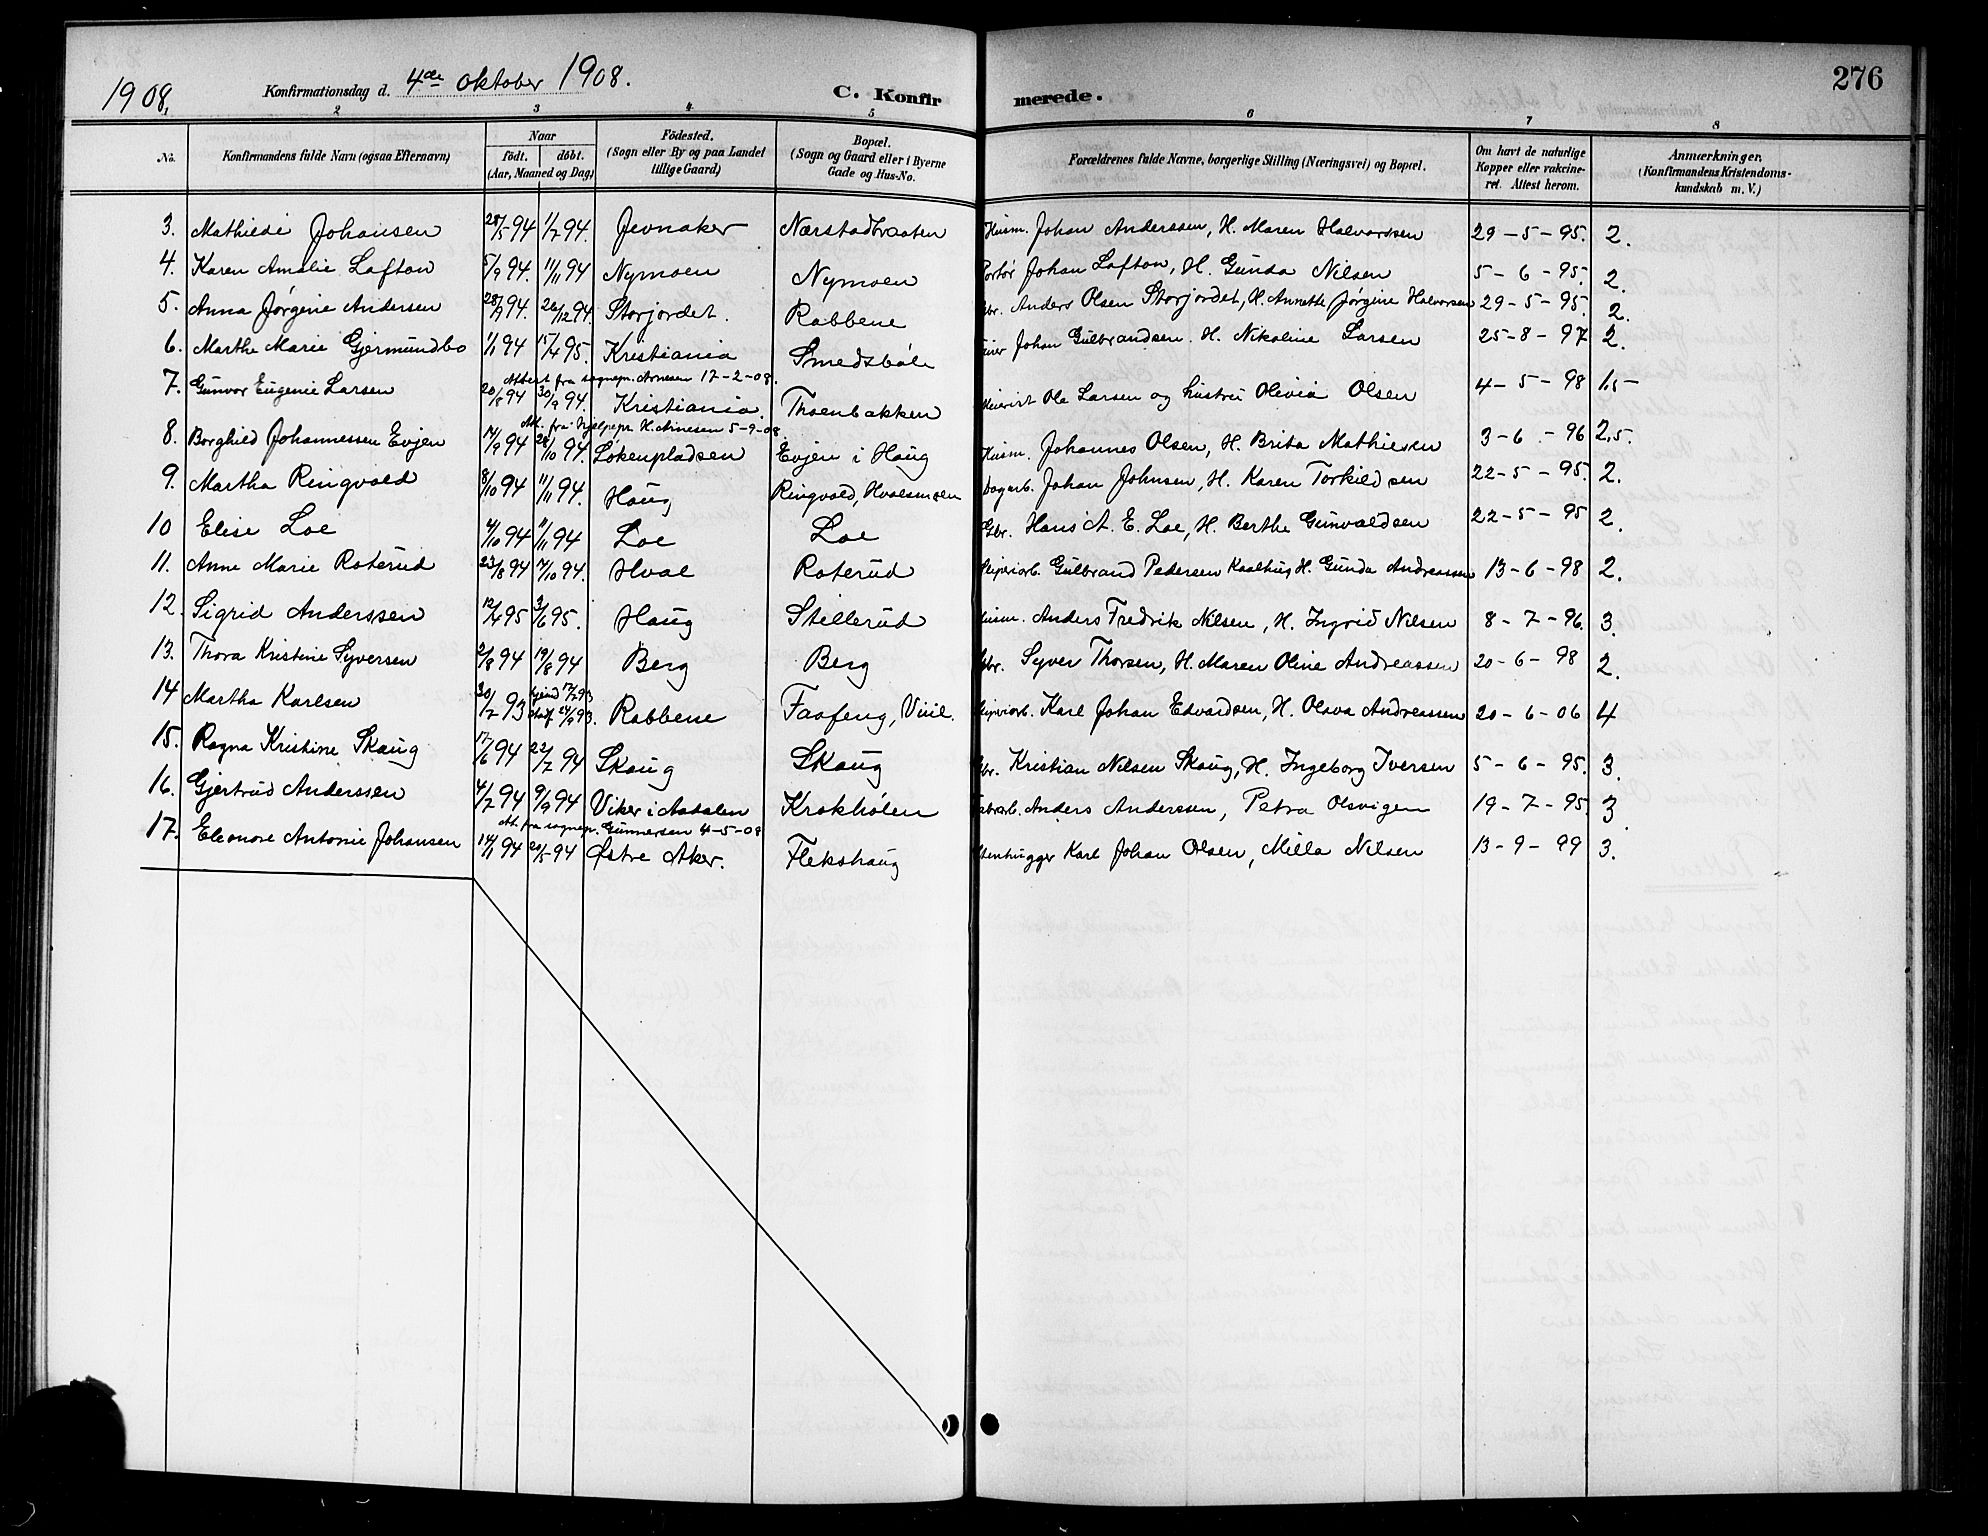 1908, Konfirmationsdag d. 4de oktober 1908. C. Konfirmerede. 276
1 2 3 4 5 6 7 8
No. Konfirmandens fulde Navn (ogsaa Efternavn) Naar født. døbt. (Aar, Maaned og Dag) Födested. (Sogn eller By og paa Landet tillige Gaard) Bopæl. (Sogn og Gaard eller i Byerne Gade og Hus-No. Forældrenes fulde Navne, borgerlige Stilling (Næringsvei) og Bopæl. Om havt de naturlige Kopper eller vakcineret. Attest herom. Anmærkninger. (Konfirmandens Kristendomskundskab m. V.)
3. Mathilde Johansen 28/5 94 1/7 94. Jevnaker Nærstadbraaten Husm. Johan Anderssen, H. Maren Halvorssen 29-5-95. 2.
4. Karen Amalie Lafton 5/9 94. 11/11 94 Nymoen Nymoen Portør Johan Lafton, H. Gunda Nilsen 5-6-95. 2.
5. Anna Jørgine Andersen 28/9 94. 26/12 94. Storjordet. Rabbene Gbr. Anders Olsen Storjordet, H. Annette Jørgine Halvorsen 29-5-95. 2.
6. Marthe Marie Gjermundbo 1/1 94 15/4 95. Kristiania Smedsbøle Johan Gulbrandsen. H. Nikoline Larsen 25-8-97 2.
Attest fra sognepr. Arnesen 17-2-08.
7. Gunvor Eugenie Larsen 20/8 94 30/9 94. Kristiania. Thoenbakken Ola Larsen og hustru Olivia Olsen 4-5-98 1,5-
Att. fra hjelpepr. H. Arnesen 5-9-08
8. Borghild Johannessen Evjen 14/9 94 28/10 94. Løkenpladsen Evjen i Haug Husm. Johannes Olsen, H. Brita Mathiesen 3-6-96 2,5.
9. Martha Ringvold 8/10 94 11/11 94. Haug Ringvold, Hvalsmoen Dagarb. Johan Johnsen, H. Karen Torkildsen 22-5-95. 2.
10 Elise Loe 4/10 94 11/11 94 Loe Loe Gbr. Hans A. E. Loe, H. Berthe Gunvaldsen 22-5-95 2.
11. Anne Marie Roterud 23/8 94 7/10 94. Hval Roterud Gulbrand Pedersen Kaalhus H. Gunda Andreassen 13-6-98 2.
12. Sigrid Anderssen 12/4 95 3/6 95. Haug Stillerud Husm. Anders Fredrik Nilsen, H. Ingrid Nilsen 8-7-96. 3.
13. Thora Kristine Syversen 2/8 94 19/8 94 Berg Berg Gbr. Syver Thorsen, H. Maren Oline Andreassen 20-6-98 2.
14 Martha Karlsen 30/7 93 hjemd 17/9 93 stadf. 24/9 93. Rabbene Faafeng, Viul. Karl Johan Edvardsen, H. Olava Andreassen 20-6-06 4
15. Ragna Kristine Skaug 17/6 94 22/7 94 Skaug Skaug Gbr. Kristian Nilsen Skaug, H. Ingeborg Iversen 5-6-95. 3.
16. Gjertrud Anderssen 4/7 94 9/9 94 Viker i Aadalen Krokhølen Anders Anderssen, Petra Olsvigen 19-7-95. 3.
Att. fra sognepr. Gunnersen 4-5-08
17. Eleonore Antonie Johansen 14/1 94 20/5 94 Østre Aker. Flekshaug Stenhugger Karl Johan Olsen, Milla Nilsen 13-9-99 3.